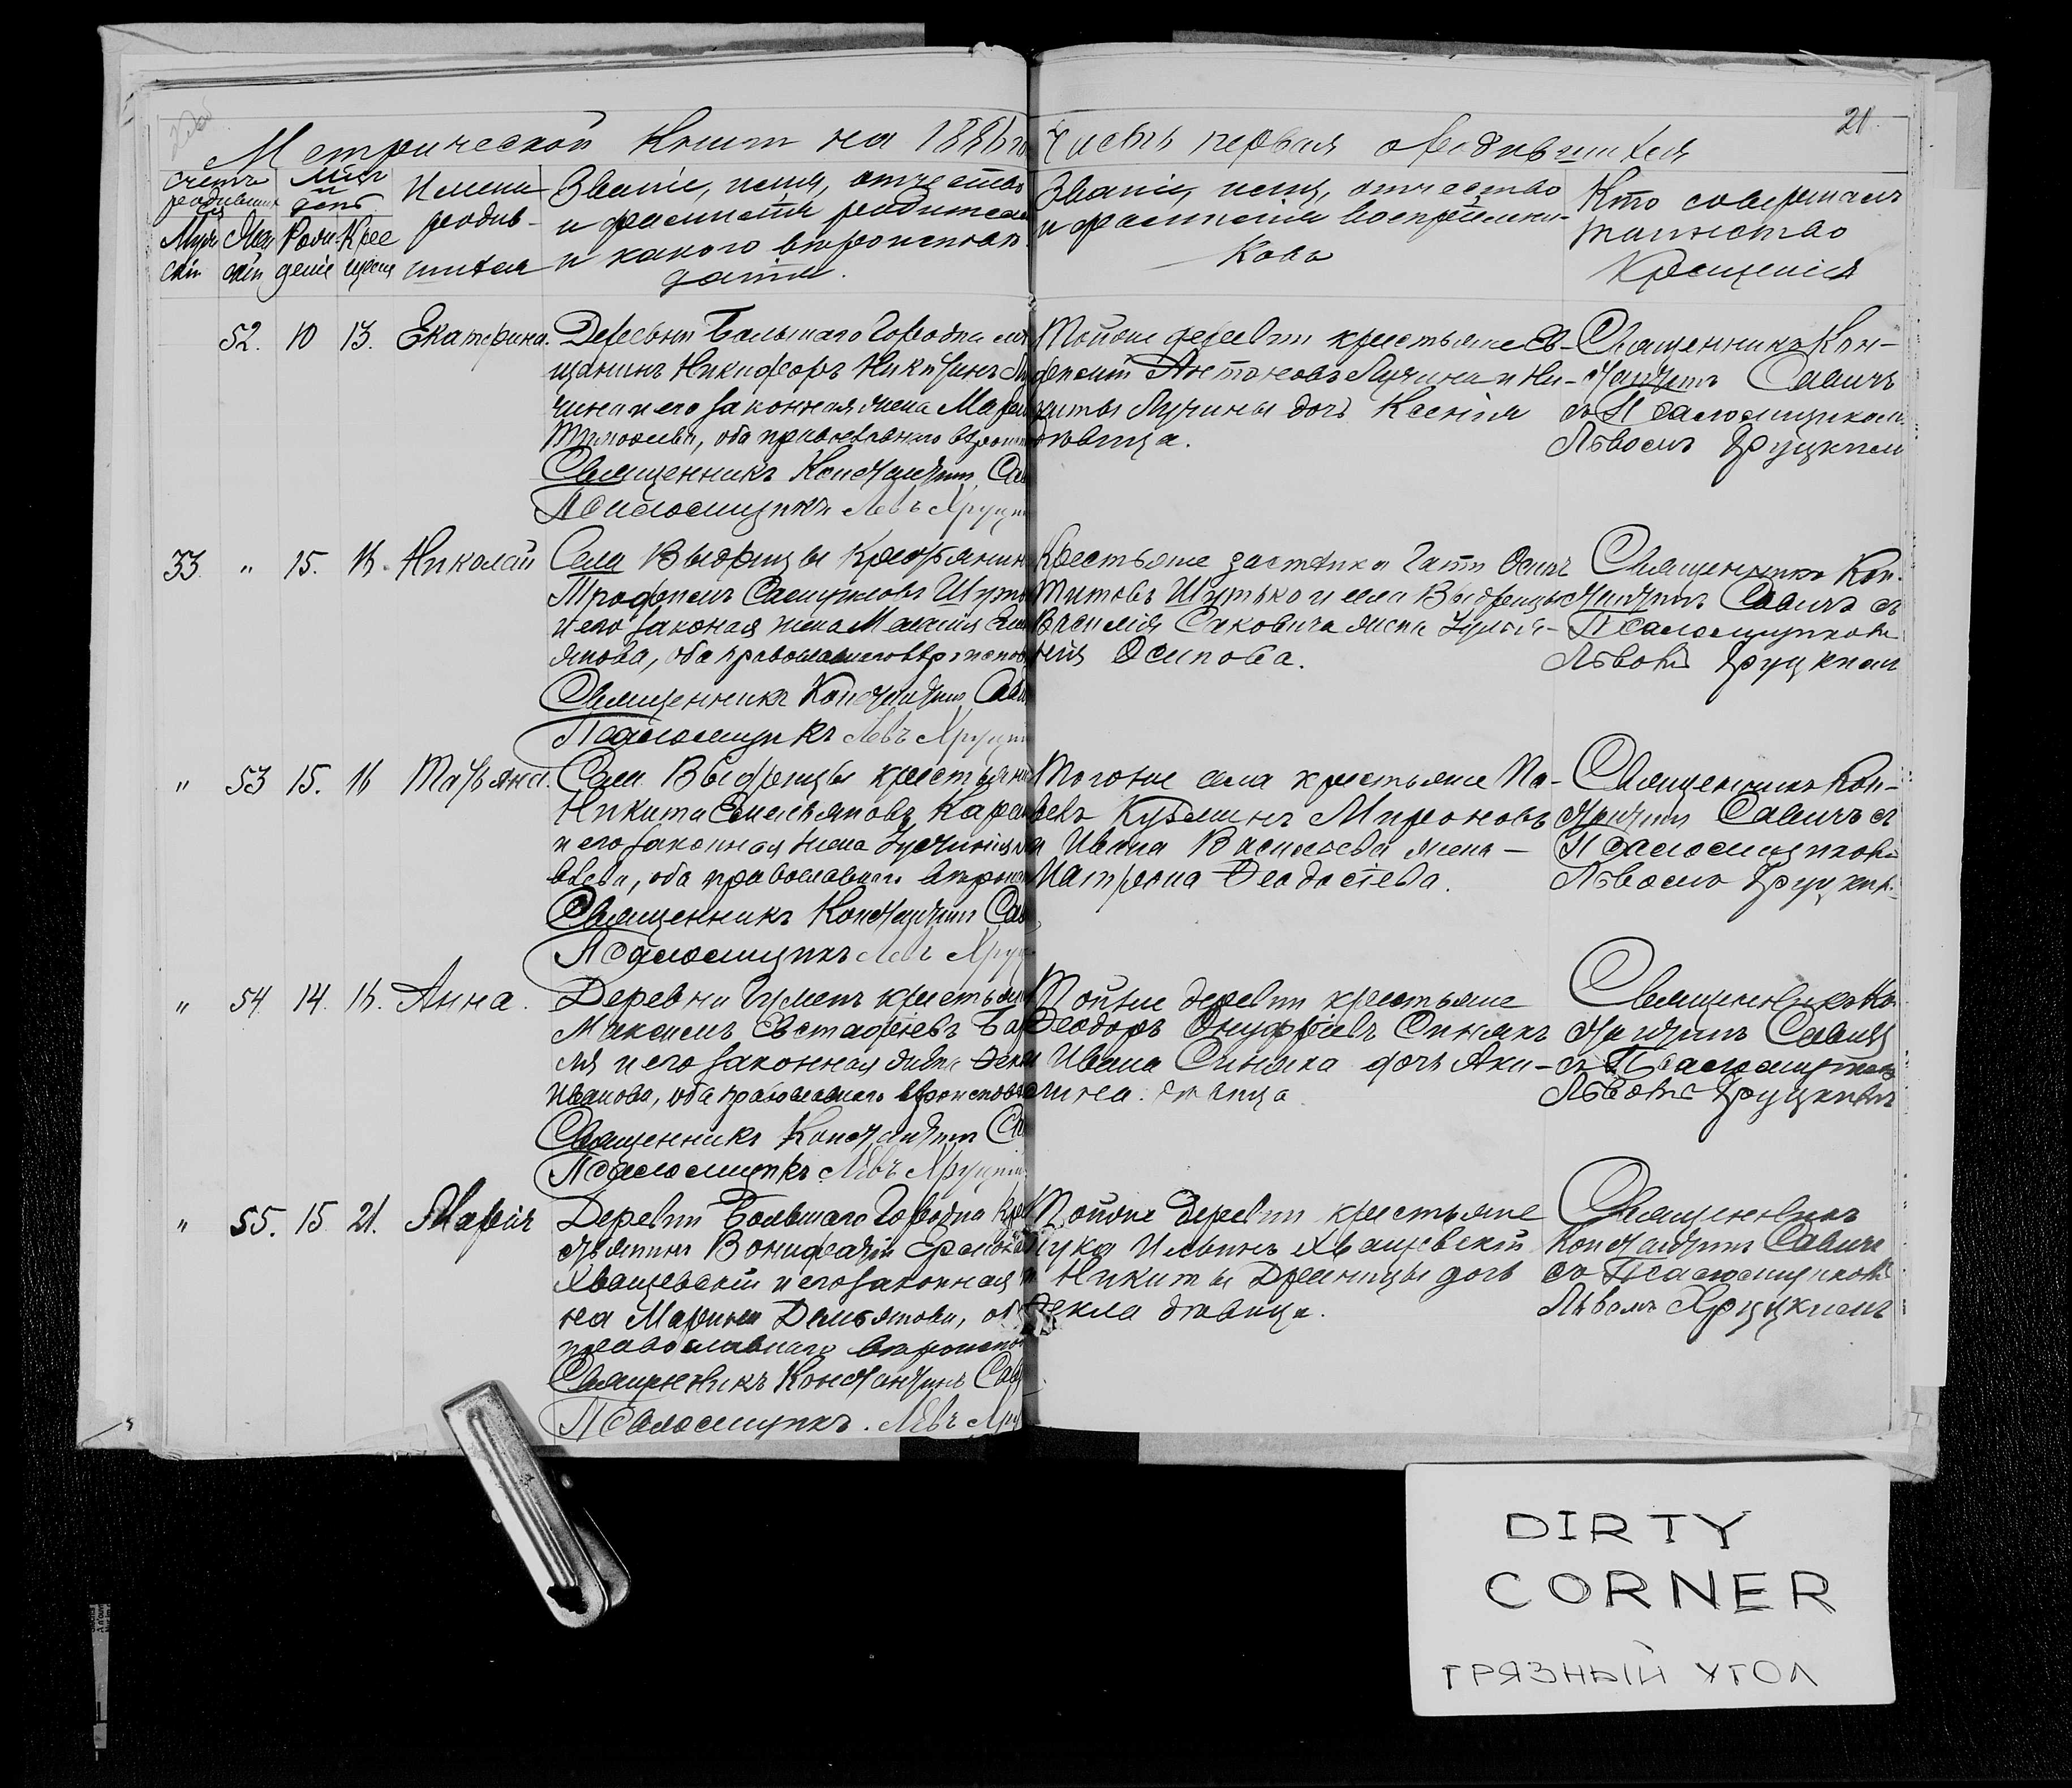 21.
Метрической Книги на 1886
часть первая о родившихся
счетъ родивших
Мѣсяцъ и день
Имена родив-
шихся
Муж
Жен
Рожденіе
Крещенія
Званіе, имя, отчество
и фамилія родител
и какого вѣроисповѣ
данія.
Званіе, имя, отчество
и фамилія воспріемни-
ковъ
Кто совершалъ
таинство
Крещенія
52. 10 13. Екатерина.
Деревни Большаго Городна мѣ
щанинъ Никифоръ Никитинъ Лу
чина и его законная жена Мар
оба православнаго вѣроисп
Священникъ Константинъ Сав
Псаломщикъ Левъ Хруцкі
Тойже деревни крестьяне Ев-
Антоновъ Лучина и Ни-
киты Лучины дочь Ксенія
дѣвица.
Священникъ Кон-
стантинъ Савичъ
съ Псаломщикомъ
Львомъ Хруцкимъ
33. " 15. 16. Николай
Села Выдрицы Крестьянинъ
Трофимъ Самуиловъ Шуть
и его законая жена
янова, оба православнаго вѣроиспов
Священникъ Константинъ Сави
Псаломщикъ Левъ Хруцкі
Крестьяне застѣнка Гати Осипъ
Титовъ Шутько и села Выдрицы
Василія Саковича жена
Осипова.
Священникъ Кон-
стантинъ Савичъ съ
Псаломщикомъ
Львомъ Хруцкимъ
" 53 15. 16 Татьяна.
Села Выдрицы крестьянин
Никита Емельяновъ Кара
и его законная жена Іустинія
оба православнаго вѣроисп
Священникъ Константинъ Сав
Псаломщикъ Левъ Хруц
Тогоже села крестьяне Па-
велъ Кузминъ Мироновъ
и Ивана Васильева жена
Матрона Ѳеодосіева.
Священникъ Кон-
стантинъ Савичъ съ
Псаломщикомъ
Львомъ Хруцким
" 54. 14. 16. Анна.
Деревни крестьян
Максимъ Евстафіевъ Ба
ля и его законная жена Ѳекл
Иванова, оба православнаго вѣроисповѣ
Священникъ Константинъ Са
Псаломщикъ Левъ Хруцкі
Тойже деревни крестьяне
Ѳеодоръ Онуфріевъ Синякъ
и Ивана Синяка дочь Аки-
лина дѣвица
Священникъ Кон
стантинъ Савичъ
съ Псаломщикомъ
Львомъ Хруцкимъ
" 55. 15 21. Марія
Деревни Большаго Городна Кре
стьянинъ Вонифатій
Хващевскій и его законная
на Марина Демьянова, об
православнаго вѣроиспо
Священникъ Константинъ Сав
Псаломщикъ. Левъ Хру
Тойже деревни крестьяне
Лука Ильинъ Хващевскій
и Никиты Дреницы дочь
Ѳекла дѣвица.
Священникъ
Константинъ Савичъ
съ Псаломщикомъ
Львомъ Хруцкимъ
DIRTY
CORNER
ГРЯЗНЫЙ УГОЛ